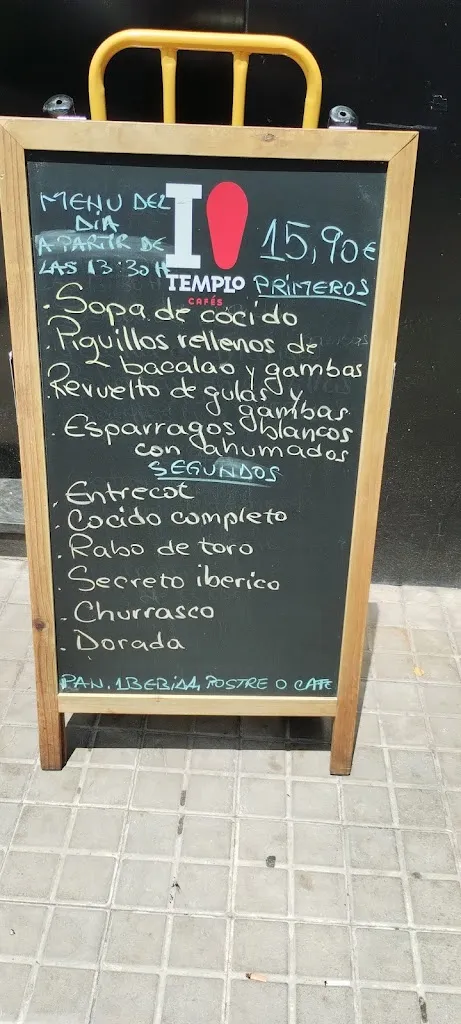 MENU DEL
DÍA
A PARTIR DE
LAS 13:30H
I
TEMPLO
CAFÉS
15,90€
PRIMEROS
. Sopa de cocido
. Piquillos rellenos de
bacalao y gambas
. Revuelto de gulas y
gambas
. Esparragos blancos
con ahumados
SEGUNDOS
. Entrecot
. Cocido completo
. Rabo de toro
. Secreto iberico
. Churrasco
. Dorada
PAN, 1 BEBIDA, POSTRE O CAFE